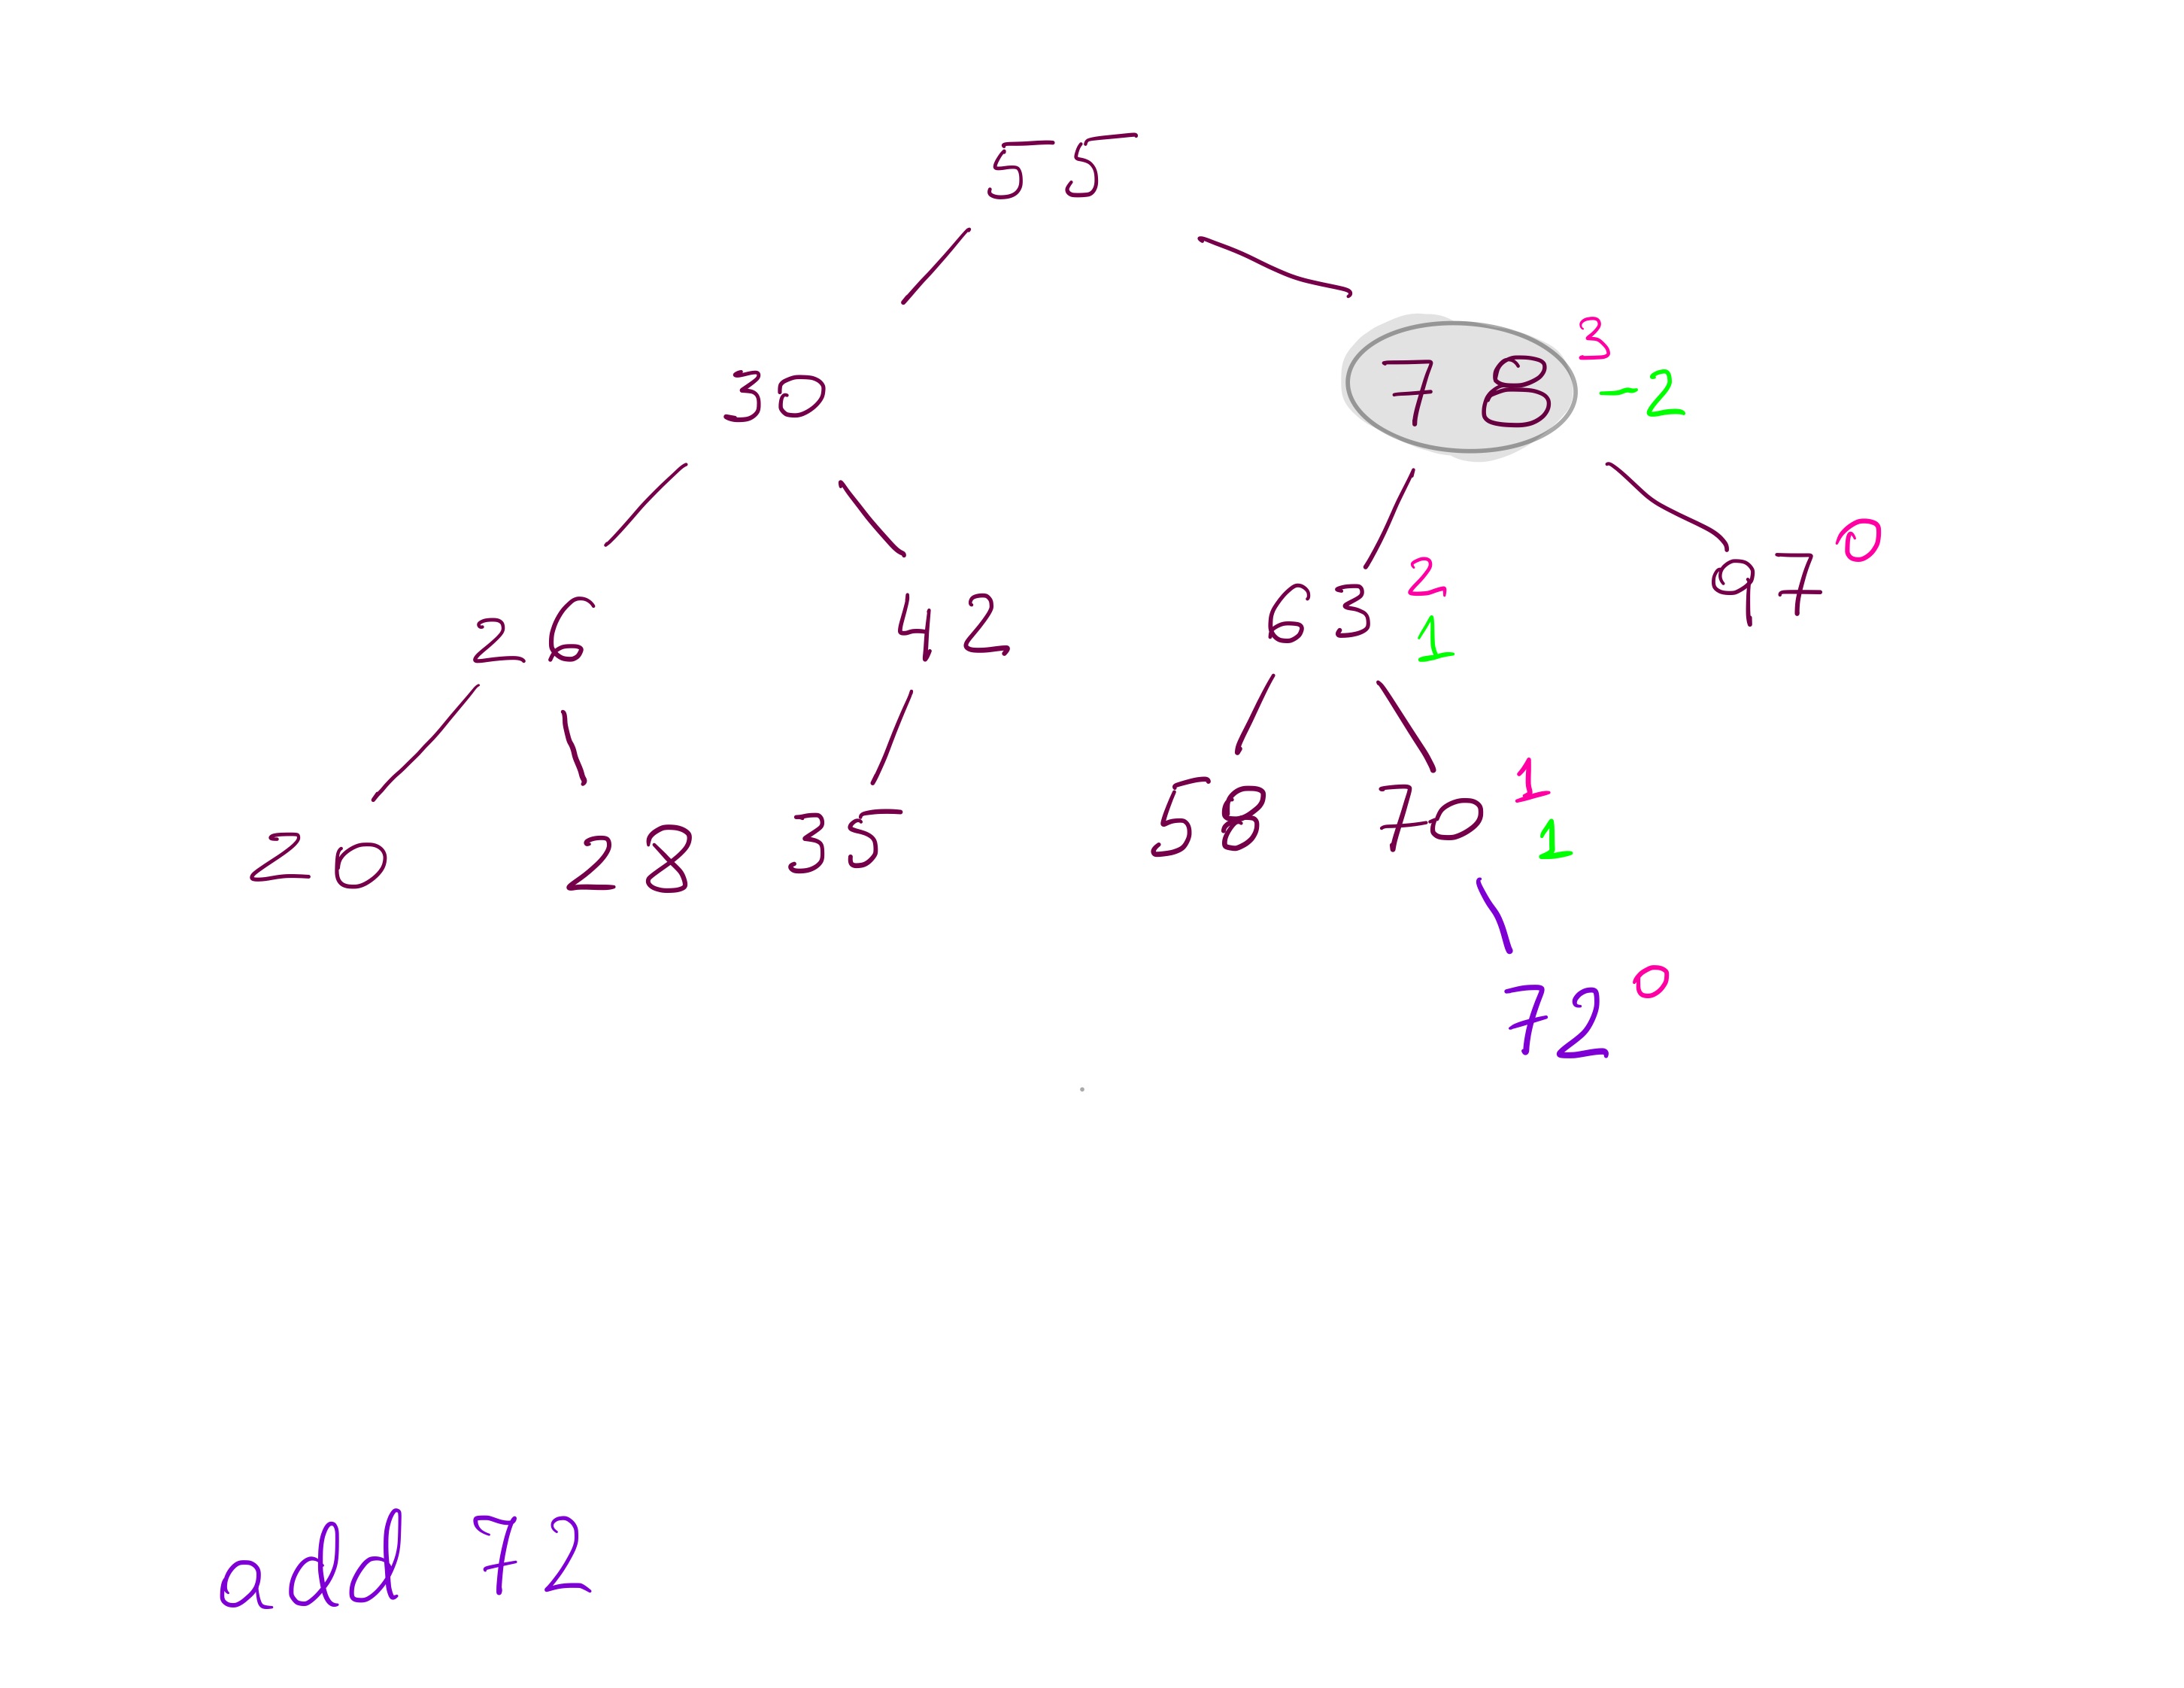 55
30 78 3 -2
26 42 63 2 1 97 0
20 28 35 58 70 1 1
72 0
add 72